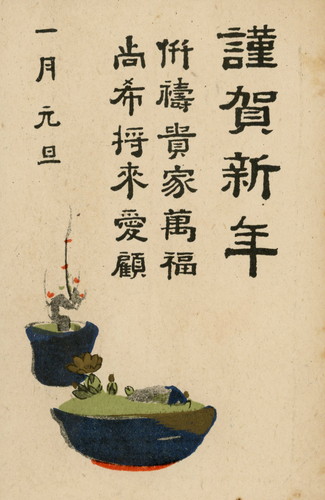 謹賀新年
併禱貴家萬福
尚希将来愛顧
一月元旦